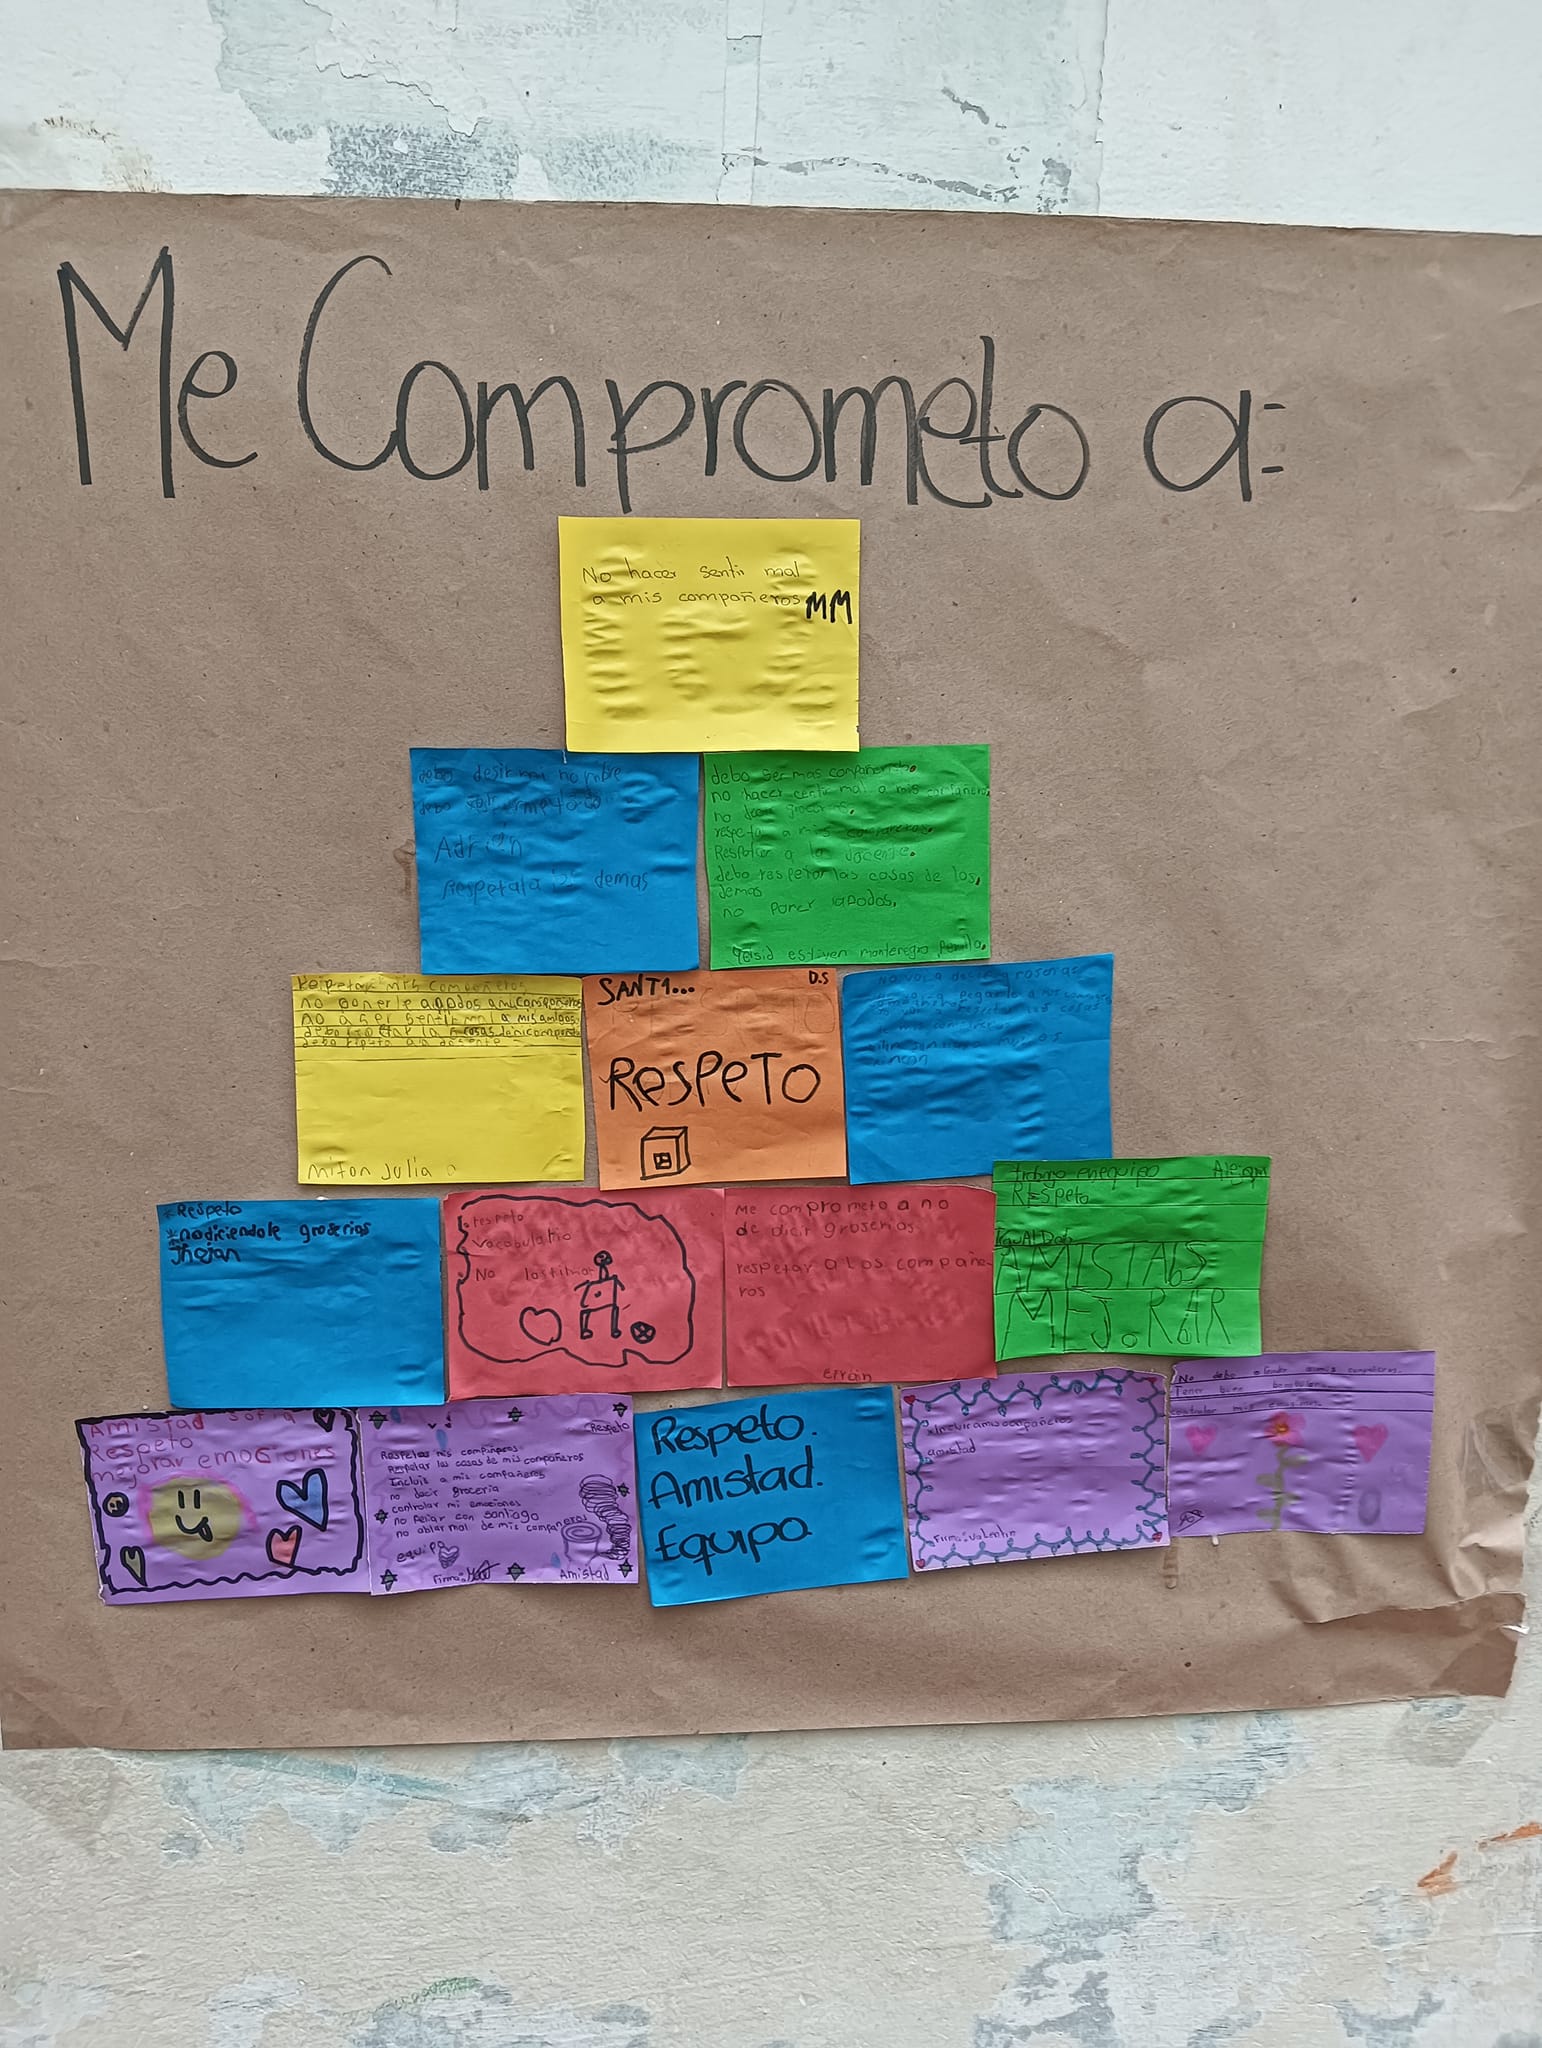 Me Comprometo a:
No hacer sentir mal
a mis compañeros MM
debo desir mi nombre
debo
Adrian
Respetala los demas
debo ser mas compañerito.
no hacer centir mal a mis compañeros
no decir grocerias.
respetar a mis compañeros.
Respetar a la docente.
debo respetar las cosas de los
demas
no poner apodos.
Yeisid estiven montenegro
Respetar mis compañeros
no ponerle apodos amis compañeros
no aser sentir mal a mis amigos.
debo cosas
debo docente
Julia
SANTI... D.S
RESPETO
No voy a decir groserias
pegarle a mis
respetar las cosas
*Respeto
*no diciendole groserias
Jhojan
respeto
Vocabulario
No lastimar
Me comprometo a no
de dicir groserias
respetar a los compañe-
ros
trabajo en equipo
RESPeto
IguAlDad
AMISTADS
MEJ.RAR
Amistad Sofia
Respeto
mejorar emociones
Respeto
Respetar mis compañeros
Respetar las cosas de mis compañeros
Incluir a mis compañeros
no decir groceria
controlar mi emociones
no peliar con santiago
no ablar mal de mis compañeros
equipo
Firma:
Amistad
Respeto.
Amistad.
Equipo
*Incluir a mis compañeros
amistad
Firma: valentin
No debo ofender a mis compañeros.
Tener buen
controlar mis emociones